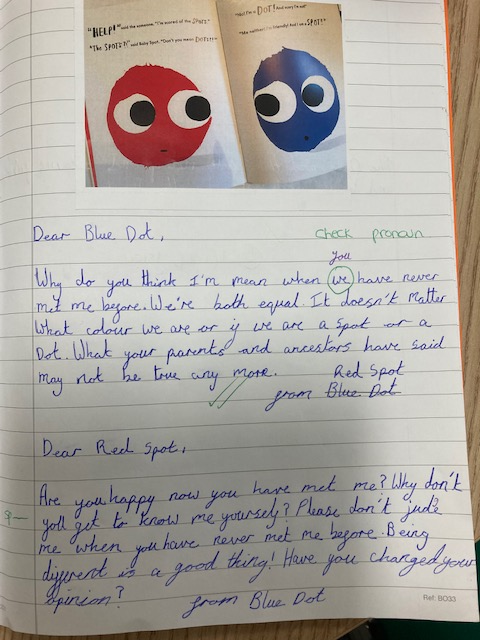 "HELP!" said the someone. "I'm scared of the SPOT."
"The SPOT?!" said Baby Spot. "Don't you mean DOT?!"
"No! I'm a DOT! And I'm not
"Me neither! I'm friendly! And I am a SPOT!"
Dear Blue Dot,
check pronoun
you
Why do you think I'm mean when we have never
met me before. We're both equal. It doesn't matter
What colour we are or if we are a spot or a
Dot. What your parents and ancestors have said
may not be true any more. Red Spot
from Blue Dot
Dear Red Spot,
Are you happy now you have met me? Why don't
g you get to know me yourself? Please don't jude
me when you have never met me before. Being
different is a good thing! Have you changed your
opinion? from Blue Dot
Ref: BO33